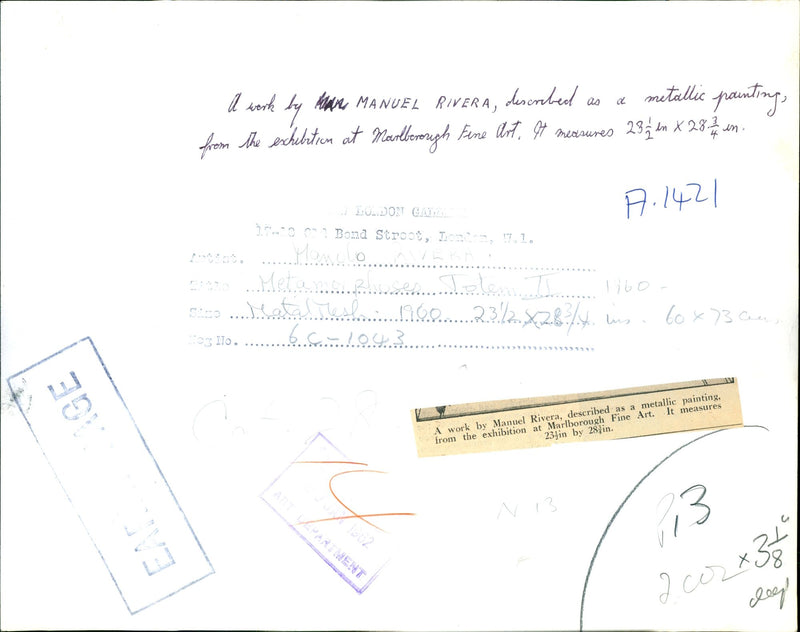 A work by MANUEL RIVERA, described as a metallic painting,
from the exhibition at Marlborough Fine Art. It measures 23½ in X 28¾ in.
A.1421
LONDON
Bond Street, London, W.1.
Artist. Manolo RIVERA
Metamorphoses Totem II 1960-
Size Metal Mesh - 1960. 23½ x 28¾ ins. 60 x 73 cms
Neg No. 6C-1043
A work by Manuel Rivera, described as a metallic painting,
from the exhibition at Marlborough Fine Art. It measures
23½in by 28¾in.
1962
ART DEPARTMENT
N 13
P.13
x 3⅛"
deep